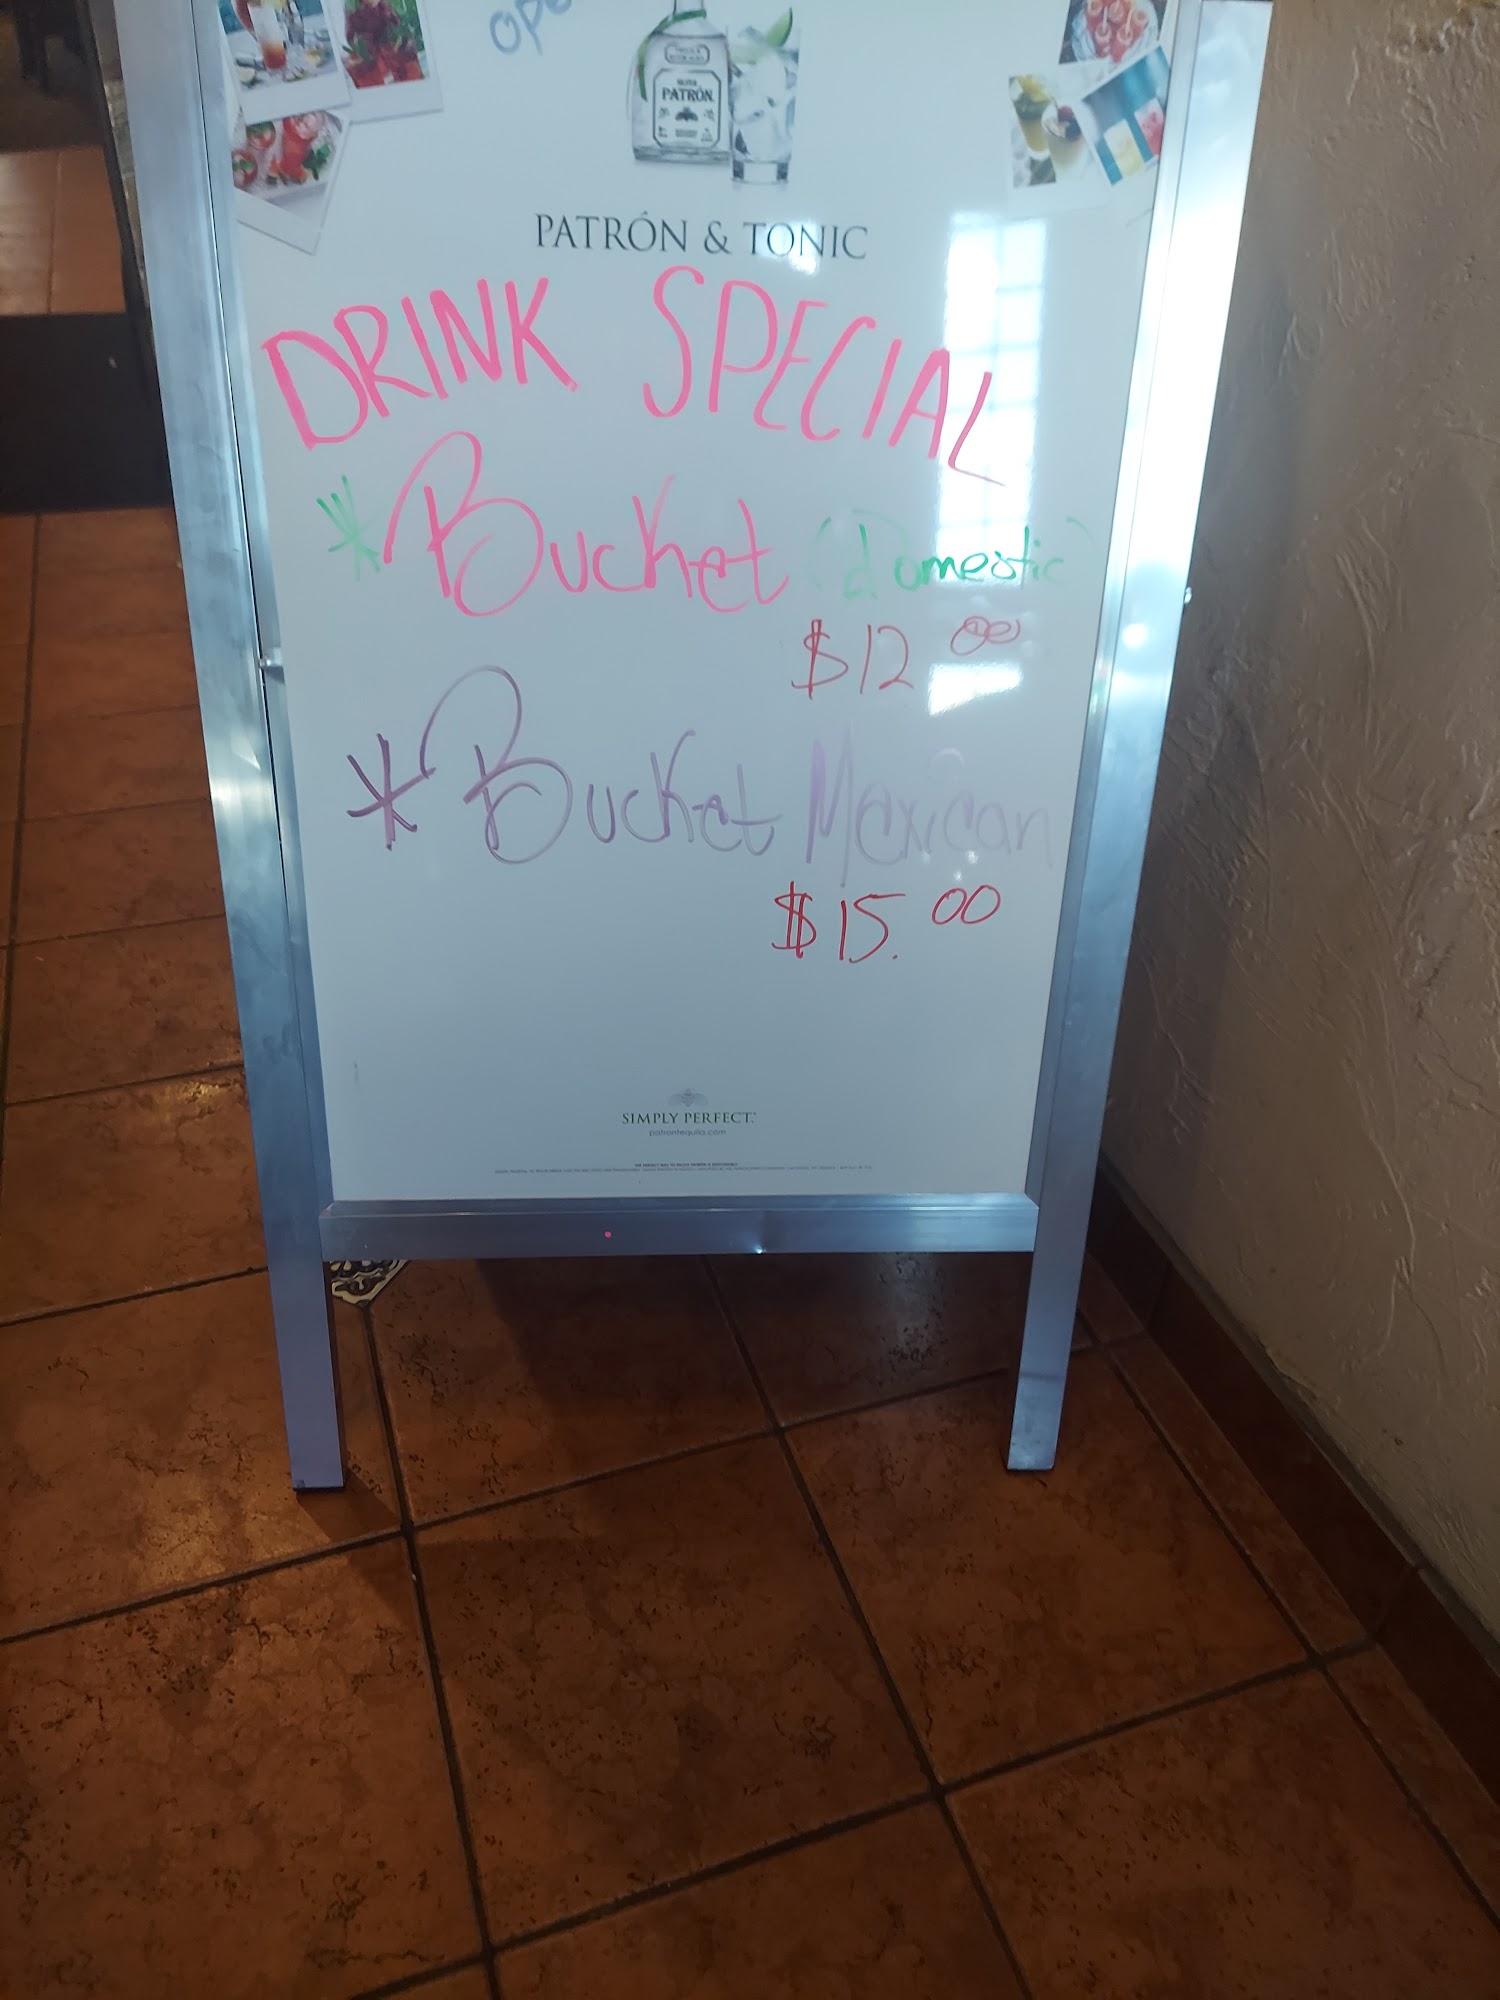 PATRÓN
PATRÓN & TONIC
DRINK SPECIAL
*Bucket (Domestic)
$12 00
*Bucket Mexican
$15.00
SIMPLY PERFECT.
patrontequila.com